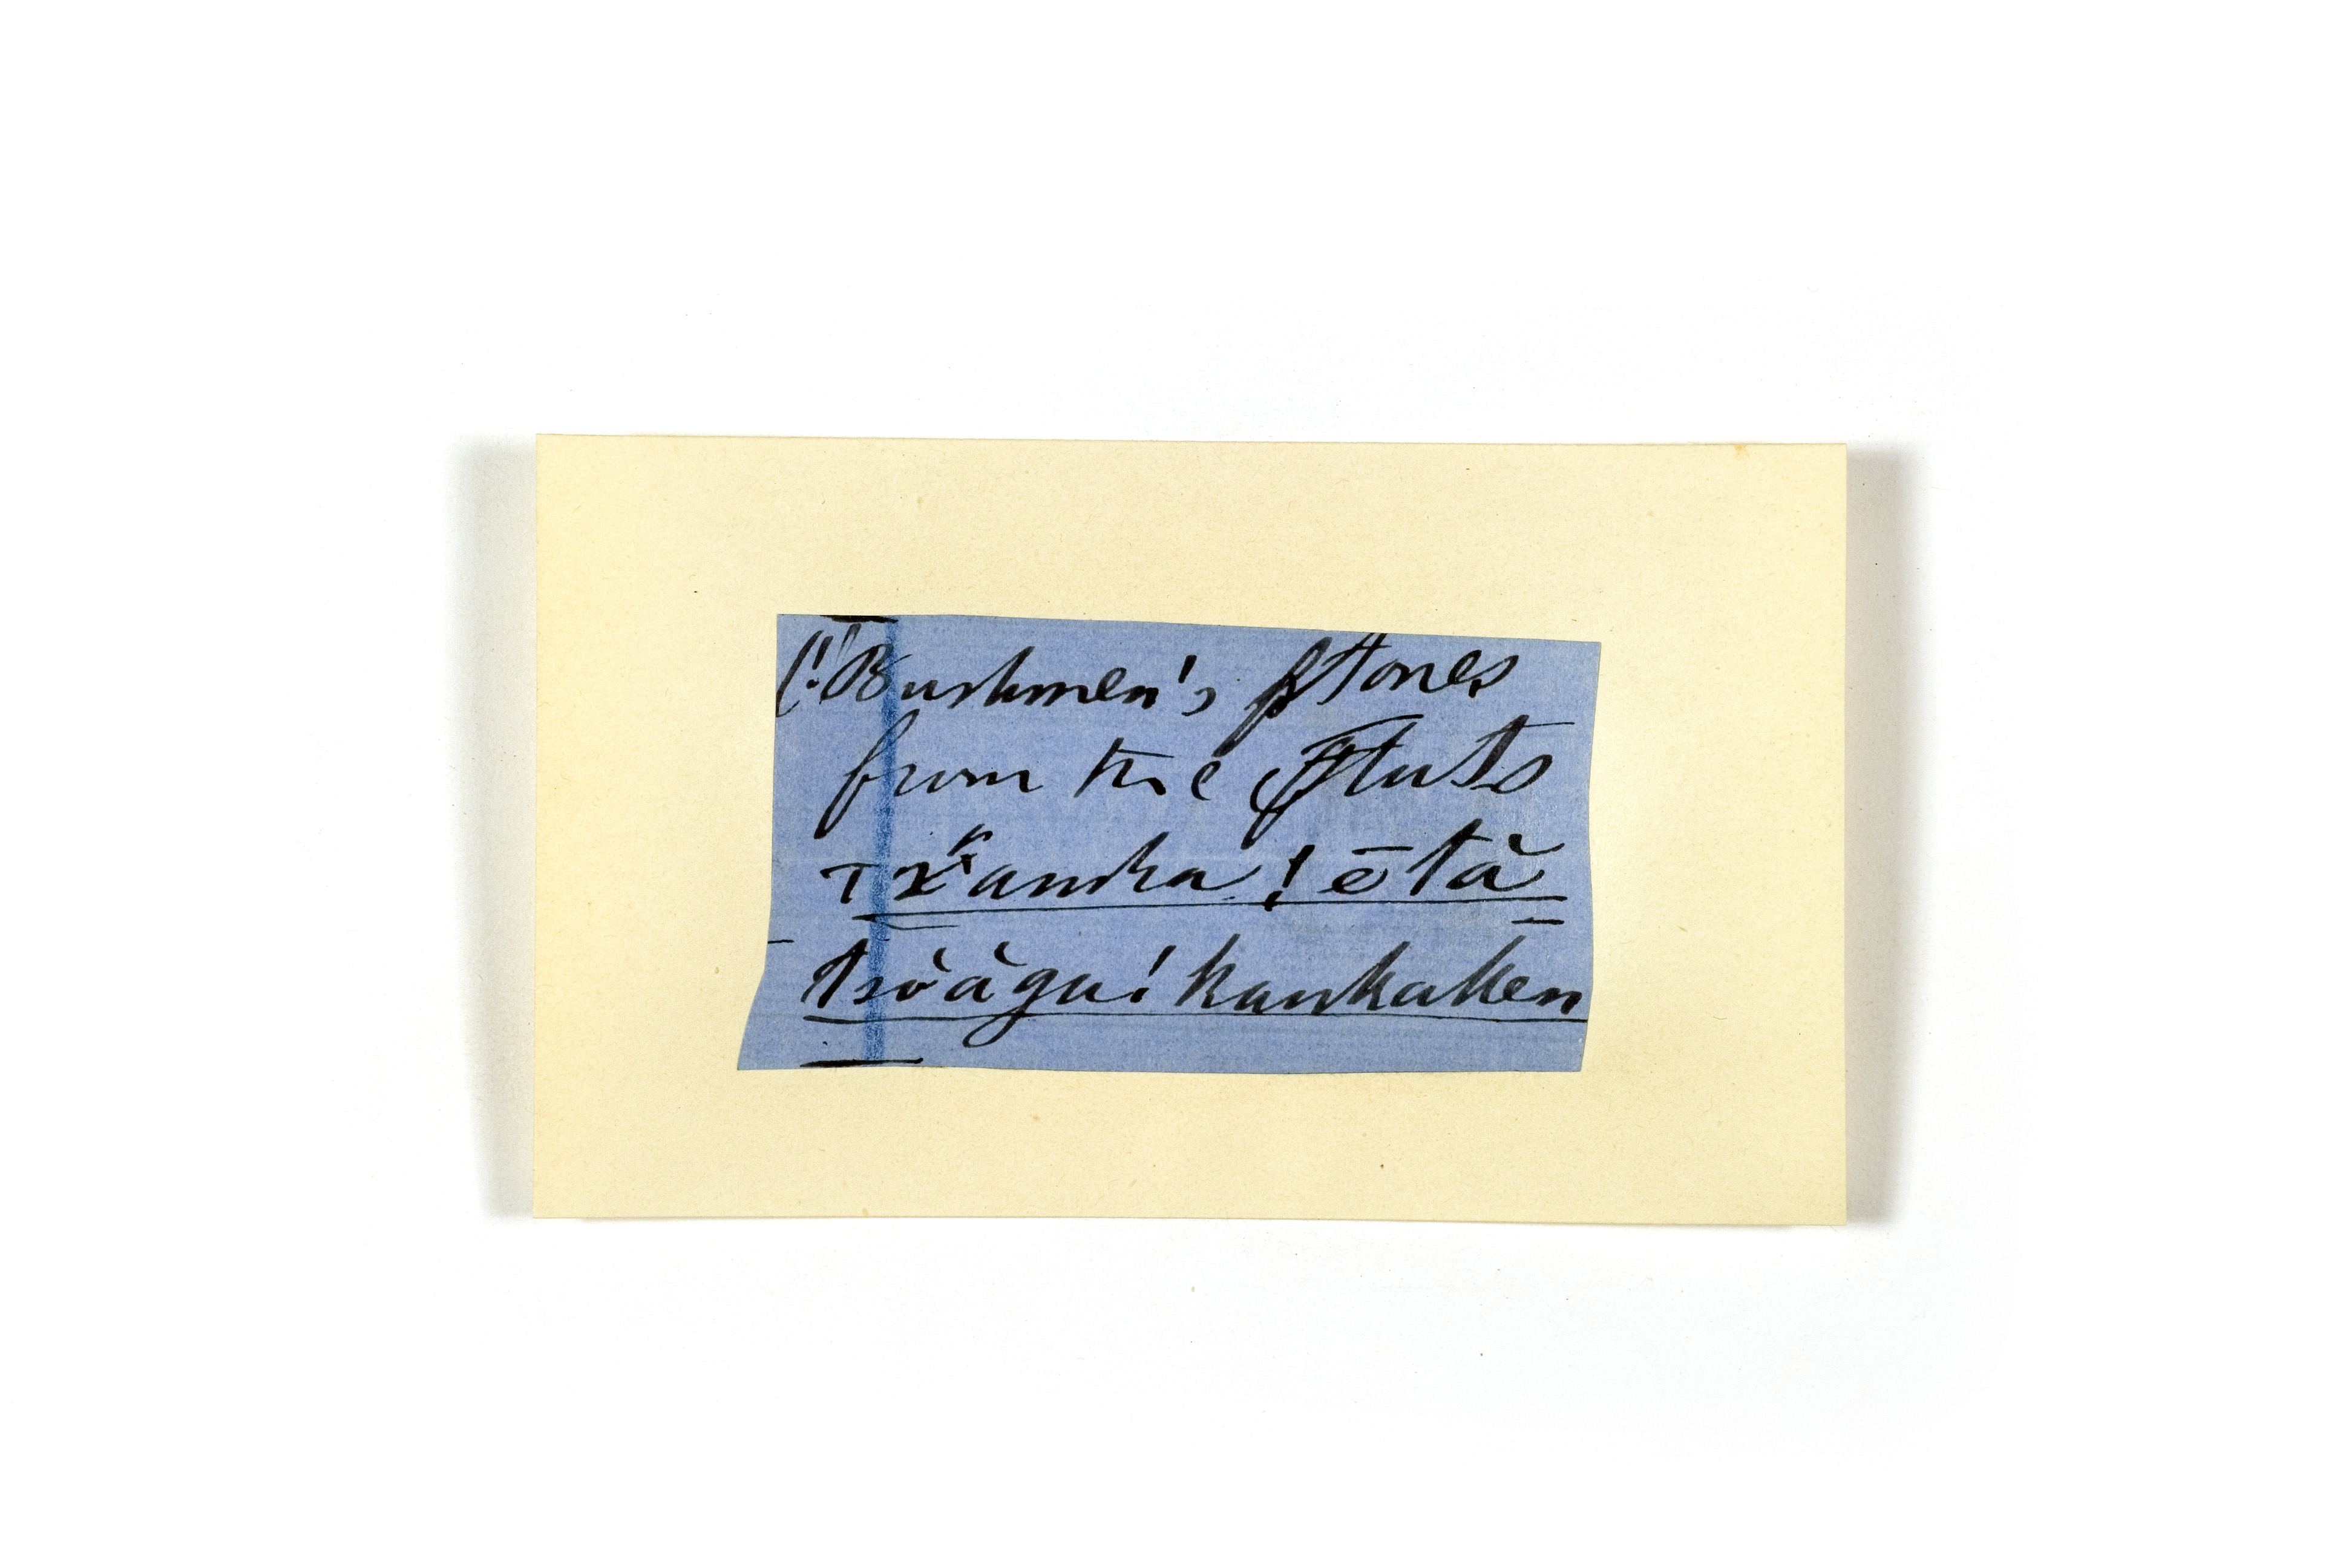 (! Bushmen's Stones
from the Fluts
Txanka! ētà
tsòàgu! kaukaken